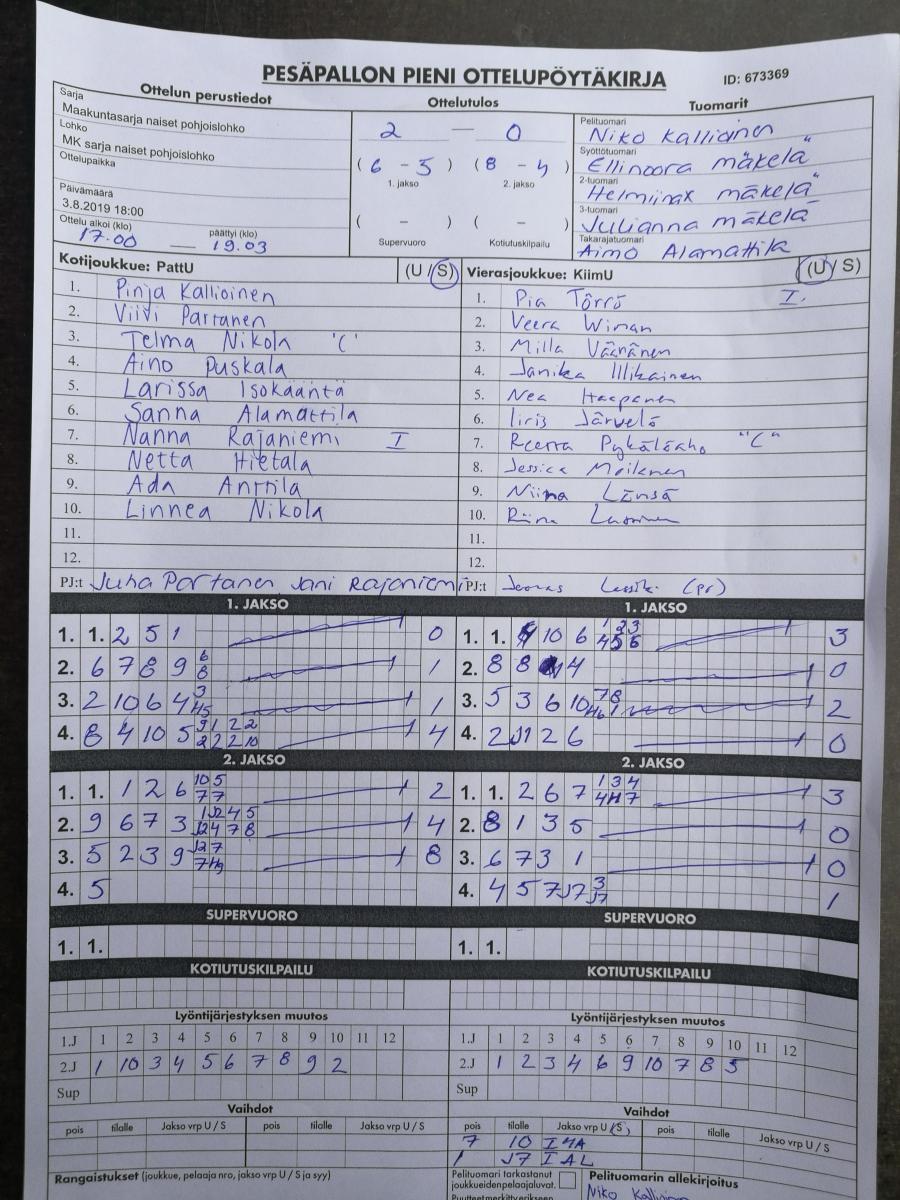 PESÄPALLON PIENI OTTELUPÖYTÄKIRJA
ID: 673369
Ottelun perustiedot
Sarja
Maakuntasarja naiset pohjoislohko
Lohko
MK sarja naiset pohjoislohko
Ottelupaikka
Päivämäärä
3.8.2019 18:00
Ottelu alkoi (klo) päättyi (klo)
17.00 — 19.03
Ottelutulos
2 — 0
(6 - 5) (8 - 4)
1. jakso 2. jakso
( - ) ( - )
Supervuoro Kotiutuskilpailu
Tuomarit
Pelituomari
Niko Kallioinen
Syöttötuomari
Ellinoora mäkelä
2-tuomari
mäkelä
3-tuomari
Julianna mäkelä
Takarajatuomari
Aimo Alamattila
Kotijoukkue: PattU (U / S)
1. Pinja Kallioinen
2. Viivi Partanen
3. Telma Nikola "C"
4. Aino Puskala
5. Larissa Isokääntä
6. Sanna Alamattila
7. Nanna Rajaniemi I
8. Netta Hietala
9. Ada Anttila
10. Linnea Nikola
11.
12.
PJ:t Juha Partanen Jani Rajaniemi
Vierasjoukkue: KiimU (U / S)
1. Pia Törrö I.
2. Veera Winan
3. Milla Väänänen
4. Janika Illikainen
5. Nea Haapanen
6. Iiris Järvelä
7. "C"
8. Jessica Moilanen
9. Niina Länsä
10.
11.
12.
PJ:t Joonas (pj)
1. JAKSO
1. 1. 2 5 1 0
2. 6 7 8 9 6 8 1
3. 2 10 6 4 3 1
4. 8 4 10 5 4
1. JAKSO
1. 1. 10 6 3
2. 8 8 4 0
3. 5 3 6 10 7 8 2
4. 2 J1 2 6 0
2. JAKSO
1. 1. 1 2 6 10 5 7 7 2
2. 9 6 7 3 4
3. 5 2 3 9 8
4. 5
2. JAKSO
1. 1. 2 6 7 1 3 4 3
2. 8 1 3 5 0
3. 6 7 3 1 0
4. 4 5 7 J7 3 J7 1
SUPERVUORO
1. 1.
SUPERVUORO
1. 1.
KOTIUTUSKILPAILU
KOTIUTUSKILPAILU
Lyöntijärjestyksen muutos
1.J 1 2 3 4 5 6 7 8 9 10 11 12
2.J 1 10 3 4 5 6 7 8 9 2
Sup
Lyöntijärjestyksen muutos
1.J 1 2 3 4 5 6 7 8 9 10 11 12
2.J 1 2 3 4 6 9 10 7 8 5
Sup
Vaihdot
pois tilalle Jakso vrp U / S pois tilalle Jakso vrp U / S
Vaihdot
pois tilalle Jakso vrp U / S pois tilalle Jakso vrp U / S
7 10 I 4A
1 J7 I AL
Rangaistukset (joukkue, pelaaja nro, jakso vrp U / S ja syy)
Pelituomari tarkastanut
joukkueidenpelaajaluvat.
Puutteetmerkitty erikseen
Pelituomarin allekirjoitus
Niko Kallioinen